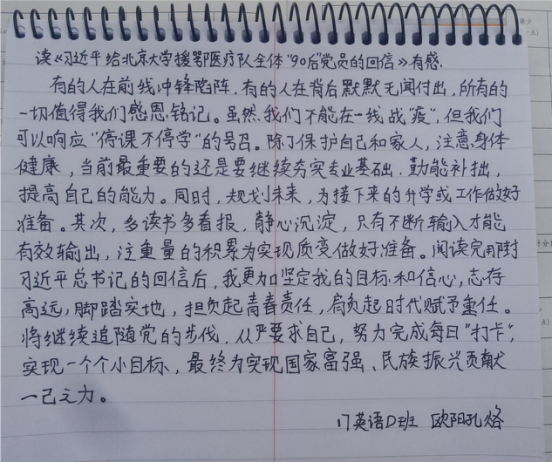 读《习近平给北京大学援鄂医疗队全体"90后"党员的回信》有感
有的人在前线冲锋陷阵，有的人在背后默默无闻付出，所有的
一切值得我们感恩、铭记。虽然我们不能在一线战"疫"，但我们
可以响应"停课不停学"的号召。除了保护自己和家人，注意身体
健康，当前最重要的还是要继续夯实专业基础，勤能补拙，
提高自己的能力。同时，规划未来，为接下来的升学或工作做好
准备。其次，多读书多看报，静心沉淀，只有不断输入才能
有效输出，注重量的积累为实现质变做好准备。阅读完
习近平总书记的回信后，我更加坚定我的目标和信心，志存
高远，脚踏实地，担负起青春责任，肩负起时代赋予重任。
将继续追随党的步伐，从严要求自己，努力完成每日"打卡"，
实现一个个小目标，最终为实现国家富强、民族振兴贡献
一己之力。
17英语D班 欧阳孔烙